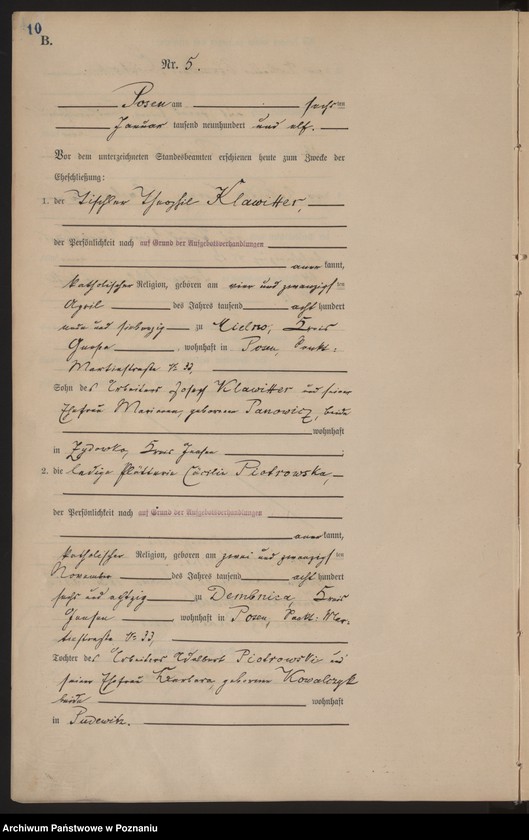 10
B.
Nr. 5.
Posen am sechsten
Januar tausend neunhundert und elf.
Vor dem unterzeichneten Standesbeamten erschienen heute zum Zwecke der
Eheschließung:
1. der Tischler Theophil Klawitter,
der Persönlichkeit nach auf Grund der Aufgebotsverhandlungen
anerkannt,
katholischer Religion, geboren am vier und zwanzigsten
April des Jahres tausend acht hundert
neun und siebzig zu Mielno, Kreis
Gnesen, wohnhaft in Posen, Sankt-
Martinstraße № 33,
Sohn des Arbeiters Josef Klawitter und seiner
Ehefrau Marianna, geborenen Panowicz, beide
wohnhaft
in Zydowko, Kreis Gnesen
2. die ledige Plätterin Cäcilie Piotrowska,
der Persönlichkeit nach auf Grund der Aufgebotsverhandlungen
anerkannt,
katholischer Religion, geboren am zwei und zwanzigsten
November des Jahres tausend acht hundert
sechs und achtzig zu Dembnica, Kreis
Gnesen, wohnhaft in Posen, Sankt-Mar-
tinstraße № 33,
Tochter des Arbeiters Adalbert Piotrowski und
seiner Ehefrau Barbara, geborenen Kowalczyk
beide wohnhaft
in Pudewitz.
Archiwum Państwowe w Poznaniu